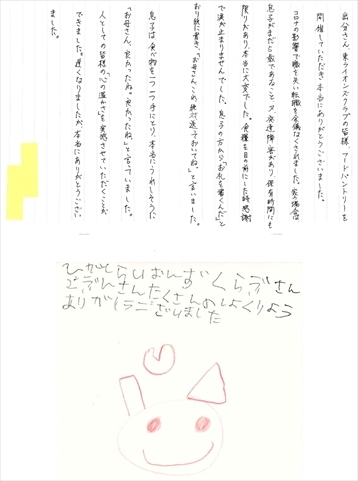 出分さん、東ライオンズクラブの皆様、フードパントリーを
開催していただき本当にありがとうございました。
コロナの影響で職を失い転職を余儀なくされました。
息子がまだ5歳であること、又、発達障害があり、保育時間にも
限りがあり、本当に大変でした。食糧を目の前にした時、感謝
で涙が止まりませんでした。息子の方から「お礼を書くんだ」と
おり紙に書き、「お母さん、この絶対送っておいてね。」と言いました。
息子は、食べ物を一つ一つ手にとり、本当にうれしそうに
「お母さん、良かったね。良かったね」と言っていました。
人としての皆様の「心の温かさ」を実感させていただくことが
できました。遅くなりましたが、本当にありがとうござい
ました。
ひがしらいおんずくらぶさん
でぶんさんたくさんのしょくりょう
ありがとうございました